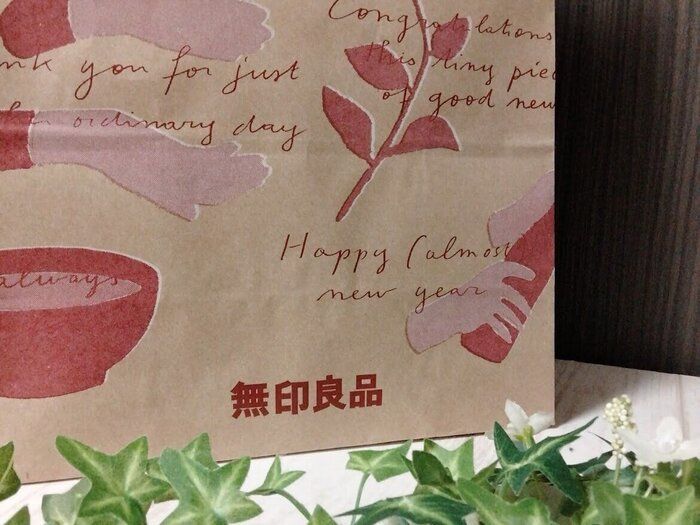 Congratulations
this tiny piece
of good new
nk you for just
ordinary day
always
Happy (almost
new year
無印良品